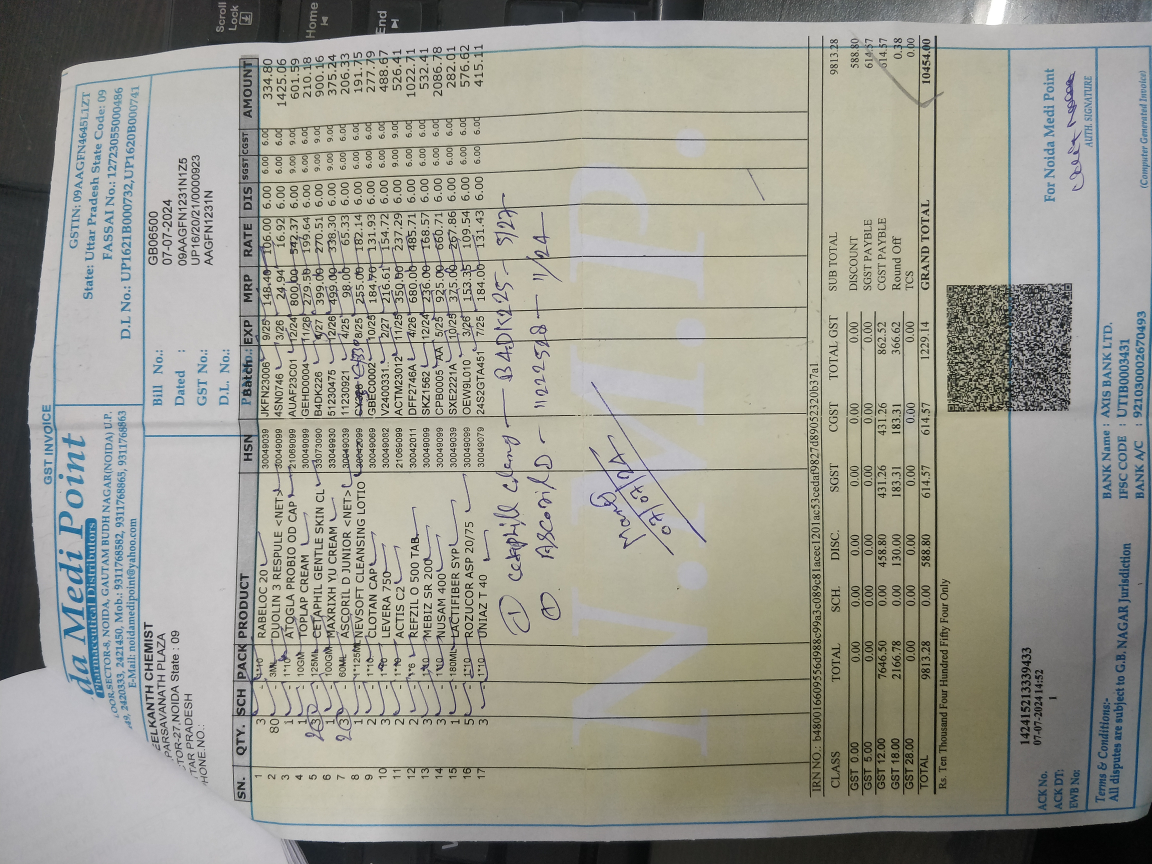 GST INVOICE
da Medi Point
Pharmaceutical Distributors
LOOR,SECTOR-8, NOIDA, GAUTAM BUDH NAGAR(NOIDA) U.P.
49, 2420333, 2421450, Mob.: 9311768582, 9311768865, 9311768863
E-Mail: noidamedipoint@yahoo.com
GSTIN: 09AAGFN4645L1ZT
State: Uttar Pradesh State Code: 09
FASSAI No.: 12723055000486
D.I. No.: UP1621B000732,UP1620B000741
EELKANTH CHEMIST
PARSAVANATH PLAZA
CTOR-27,NOIDA State : 09
TAR PRADESH
HONE.NO.:
Bill No.: GB06500
Dated : 07-07-2024
GST No.: 09AAGFN1231N1Z5
D.L. No.: UP16/20/21/0000923
AAGFN1231N
SN. QTY. SCH PACK PRODUCT HSN Batch EXP MRP RATE DIS SGST CGST AMOUNT
1 3 - 1*10 RABELOC 20 30049039 JKFN23006 9/25 148.40 106.00 6.00 6.00 6.00 334.80
2 80 - 3ML DUOLIN 3 RESPULE <NET> 30049099 4SN0746 3/26 24.94 16.92 6.00 6.00 6.00 1425.06
3 1 - 1*10 ATOGLA PROBIO OD CAP 21069099 AUAF23C01 12/24 800.00 542.37 6.00 9.00 9.00 601.59
4 1 - 10GM TOPLAP CREAM 30049099 GEHD0004 11/26 279.50 199.64 6.00 6.00 6.00 210.18
5 - 125ML CETAPHIL GENTLE SKIN CL 33073090 B4DK226 4/27 399.00 270.51 6.00 9.00 9.00 900.16
6 1 - 100GM MAXRIXH YU CREAM 30049930 51230475 12/26 499.00 338.30 6.00 9.00 9.00 375.24
7 - 60ML ASCORIL D JUNIOR <NET> 30049039 11230921 4/25 98.00 65.33 6.00 6.00 6.00 206.33
8 1 - 1*125M NEVSOFT CLEANSING LOTIO 30042099 8/25 255.00 182.14 6.00 6.00 6.00 191.75
9 2 - 1*10 CLOTAN CAP 30049069 IGBEC0002 10/25 184.70 131.93 6.00 6.00 6.00 277.79
10 3 - 1*10 LEVERA 750 30049082 V2400331 2/27 216.61 154.72 6.00 6.00 6.00 488.67
11 2 - 1*10 ACTIS C2 21069099 ACTM23012 11/25 350.00 237.29 6.00 9.00 9.00 526.41
12 2 - 1*6 REFZIL O 500 TAB 30042011 DFF2746A 4/26 680.00 485.71 6.00 6.00 6.00 1022.71
13 3 - 1*10 MEBIZ SR 200 30049099 SKZ1562 12/24 236.00 168.57 6.00 6.00 6.00 532.41
14 3 - 1*10 NUSAM 400 30049099 CPB0005 AA 5/25 925.00 660.71 6.00 6.00 6.00 2086.78
15 1 - 180ML LACTIFIBER SYP 30049039 SXE2221A 10/25 375.00 267.86 6.00 6.00 6.00 282.01
16 5 - 1*10 ROZUCOR ASP 20/75 30049099 OEW9L010 3/26 153.35 109.54 6.00 6.00 6.00 576.62
17 3 - 1*10 UNIAZ T 40 30049079 24S2GTA451 7/25 184.00 131.43 6.00 6.00 6.00 415.11
① Cetaphill
② Ascoril D - 11222528 - 11/24
07/07/24
N.M.P.
IRN NO.: b4800166095
CLASS TOTAL SCH. DISC. SGST CGST TOTAL GST
GST 0.00 0.00 0.00 0.00 0.00 0.00 0.00
GST 5.00 0.00 0.00 0.00 0.00 0.00 0.00
GST 12.00 7646.50 0.00 458.80 431.26 431.26 862.52
GST 18.00 2166.78 0.00 130.00 183.31 183.31 366.62
GST 28.00 0.00 0.00 0.00 0.00 0.00 0.00
TOTAL 9813.28 0.00 588.80 614.57 614.57 1229.14
SUB TOTAL 9813.28
DISCOUNT 588.80
SGST PAYBLE 614.57
CGST PAYBLE 614.57
Round Off 0.38
TCS 0.00
GRAND TOTAL 10454.00
Rs. Ten Thousand Four Hundred Fifty Four Only
ACK No. 142415213339433
ACK DT: 07-07-2024 14:52
EWB No: 1
Terms & Conditions:-
All disputes are subject to G.B. NAGAR Jurisdiction
BANK Name : AXIS BANK LTD.
IFSC CODE : UTIB0003431
BANK A/C : 921030002670493
For Noida Medi Point
AUTH. SIGNATURE
(Computer Generated Invoice)
Scroll
Lock
Home
End